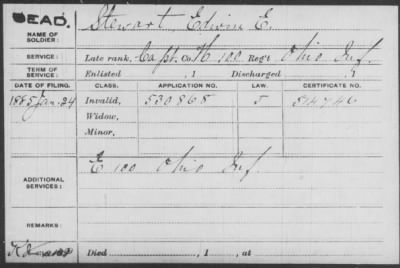 DEAD.
NAME OF SOLDIER: Stewart, Edwin E.
SERVICE: Late rank, Capt. Co. H, 100 Reg't Ohio Inf.
TERM OF SERVICE: Enlisted , 1 Discharged , 1
DATE OF FILING. CLASS. APPLICATION NO. LAW. CERTIFICATE NO.
1885 Jan. 24 Invalid, 530868 J 514746
Widow,
Minor,
E 100 Ohio Inf.
ADDITIONAL SERVICES:
REMARKS:
Died , 1 , at